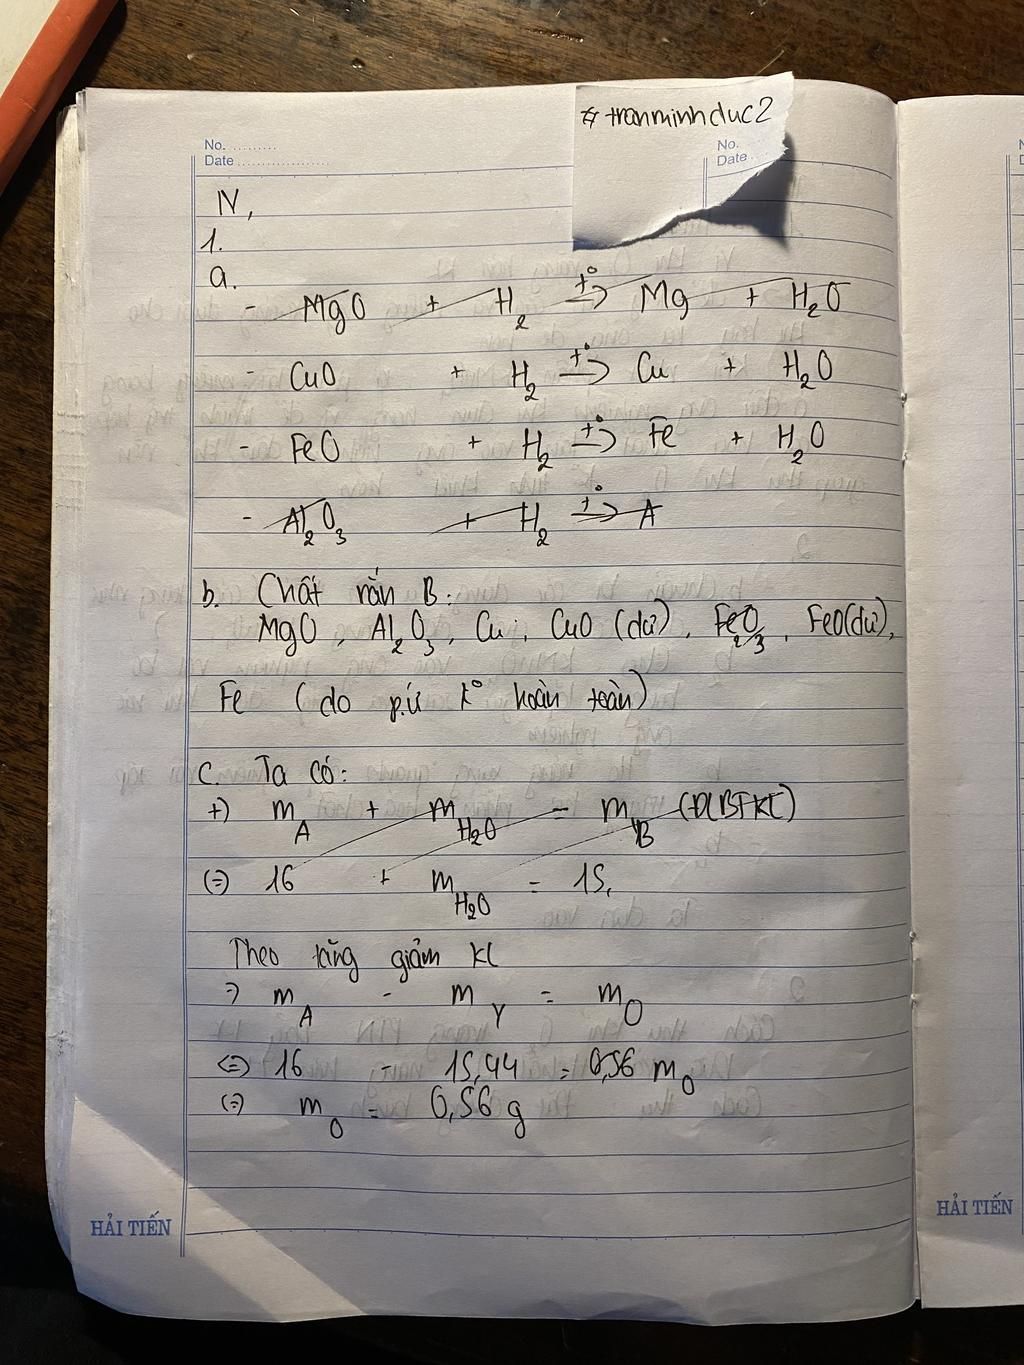 # tranminhduc2
No. .........
Date ..................
No.
Date .........
IV,
1.
a.
- MgO + H2 t°→ Mg + H2O
- CuO + H2 t°→ Cu + H2O
- FeO + H2 t°→ Fe + H2O
- Al2O3 + H2 t°→ A
b. Chất rắn B:
MgO, Al2O3, Cu, CuO (dư), Fe2O3, FeO(dư),
Fe (do p.ứ k° hoàn toàn)
c. Ta có:
+) mA + mH2O = mB (ĐLBTKL)
(=) 16 + mH2O = 15,
Theo tăng giảm KL
=) mA - mY = mO
<=> 16 - 15,44 = 0,56 mO
(=) mO = 0,56 g
HẢI TIẾN
HẢI TIẾN